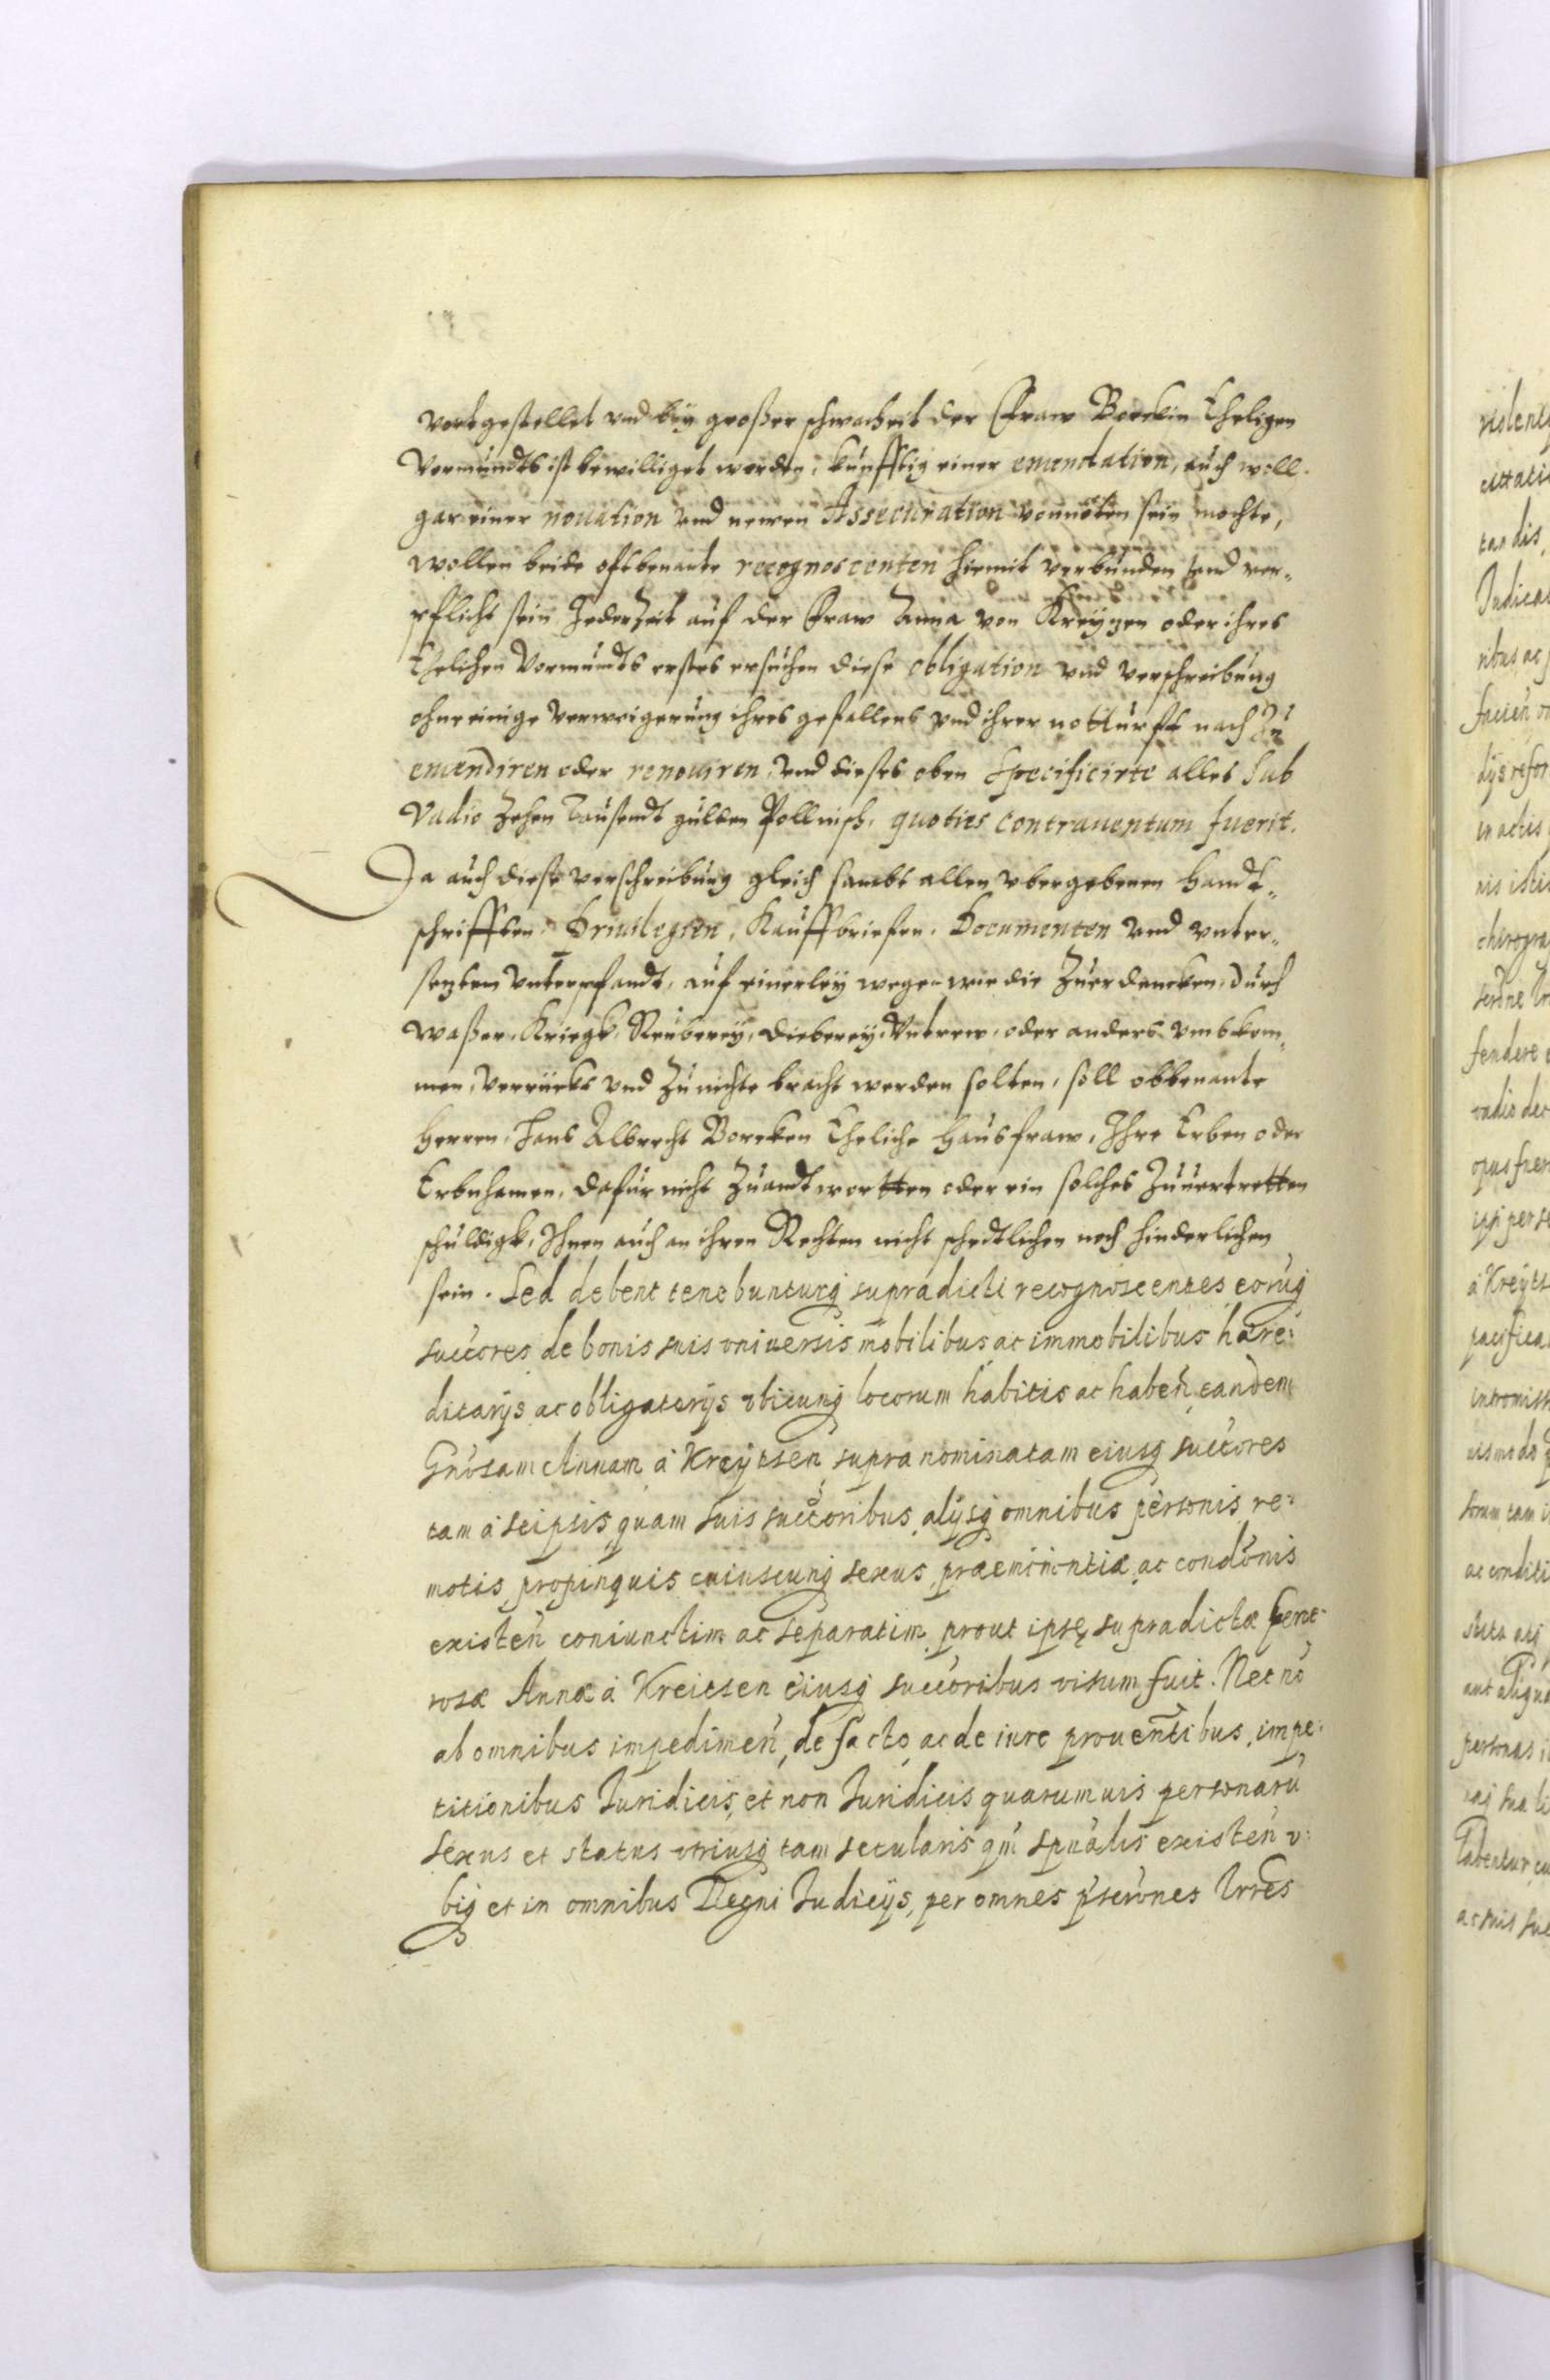 vortgestellet vnd bey großer schwacheit der Fraw Borckin Eheligen
Vormundts ist bewilliget worden, kunfftig einer emendation, auch woll
gar einer nouation vnd newen Assecuration vonnöten sein mochte,
wollen beide oftbenante recognoscenten hiemit verbunden vnd ver„
pflicht sein Jederzeit auf der Fraw Anna von Kreyzen oder ihres
Ehelichen Vormundts erstes ersuchen diese obligation vnd verschreibung
ohne einige verweigerung ihres gefallens vnd ihrer notturfft nach zu
emendiren oder renouiren, vnd dieses oben specificirte alles sub
vadio zehen Tausendt gulden Pollnisch, quoties contrauentum fuerit.
Da auch diese verschreibung gleich sambt allen vbergebenen Handt„
schrifften, Priuilegien, Kauffbriefen, Documenten vnd vnter„
sezten vnterpfandt, auf einerley wege wie die zuerdencken, durch
waßer, Kriegk, Reuberey, dieberey, Vntrew, oder anders vmbkom„
men, verrückt vnd zu nichte bracht werden solten, soll obbenante
Herren, Hans Albrecht Borcken Eheliche Hausfraw, Ihre Erben oder
Erbnhamen, dafür nicht zuandtwortten oder ein solches zuuertretten
schuldigk, Ihnen auch an ihren Rechten nicht schedtlichen noch hinderlichen
sein. Sed debent tenebunturq supradicti recognoscentes eoruq
succores de bonis suis vniuersis mobilibus ac immobilibus hære:
ditarijs ac obligatorijs vbicunq locorum habitis ac haben, eandem
Gnosam Annam à Kreytsen supra nominatam eiusq succores
tam à seipsis quam suis succoribus, alijsq omnibus personis, re:
motis propinquis cuiuscunq sexus, præeminentiæ, ac condonis
existen coniunctim ac separatim, prout ipsę supradictæ Gene:
rosæ Annæ à Kreitsen eiusq succoribus visum fuit. Nec no
ab omnibus impedimen, de facto, ac de iure prouentibus, impe:
titionibus Juridicis, et non Juridicis quarumuis personaru
sexus et status vtriusq tam secularis qm spualis existen v:
biq et in omnibus Regni Judicijs, per omnes pserones Lrres